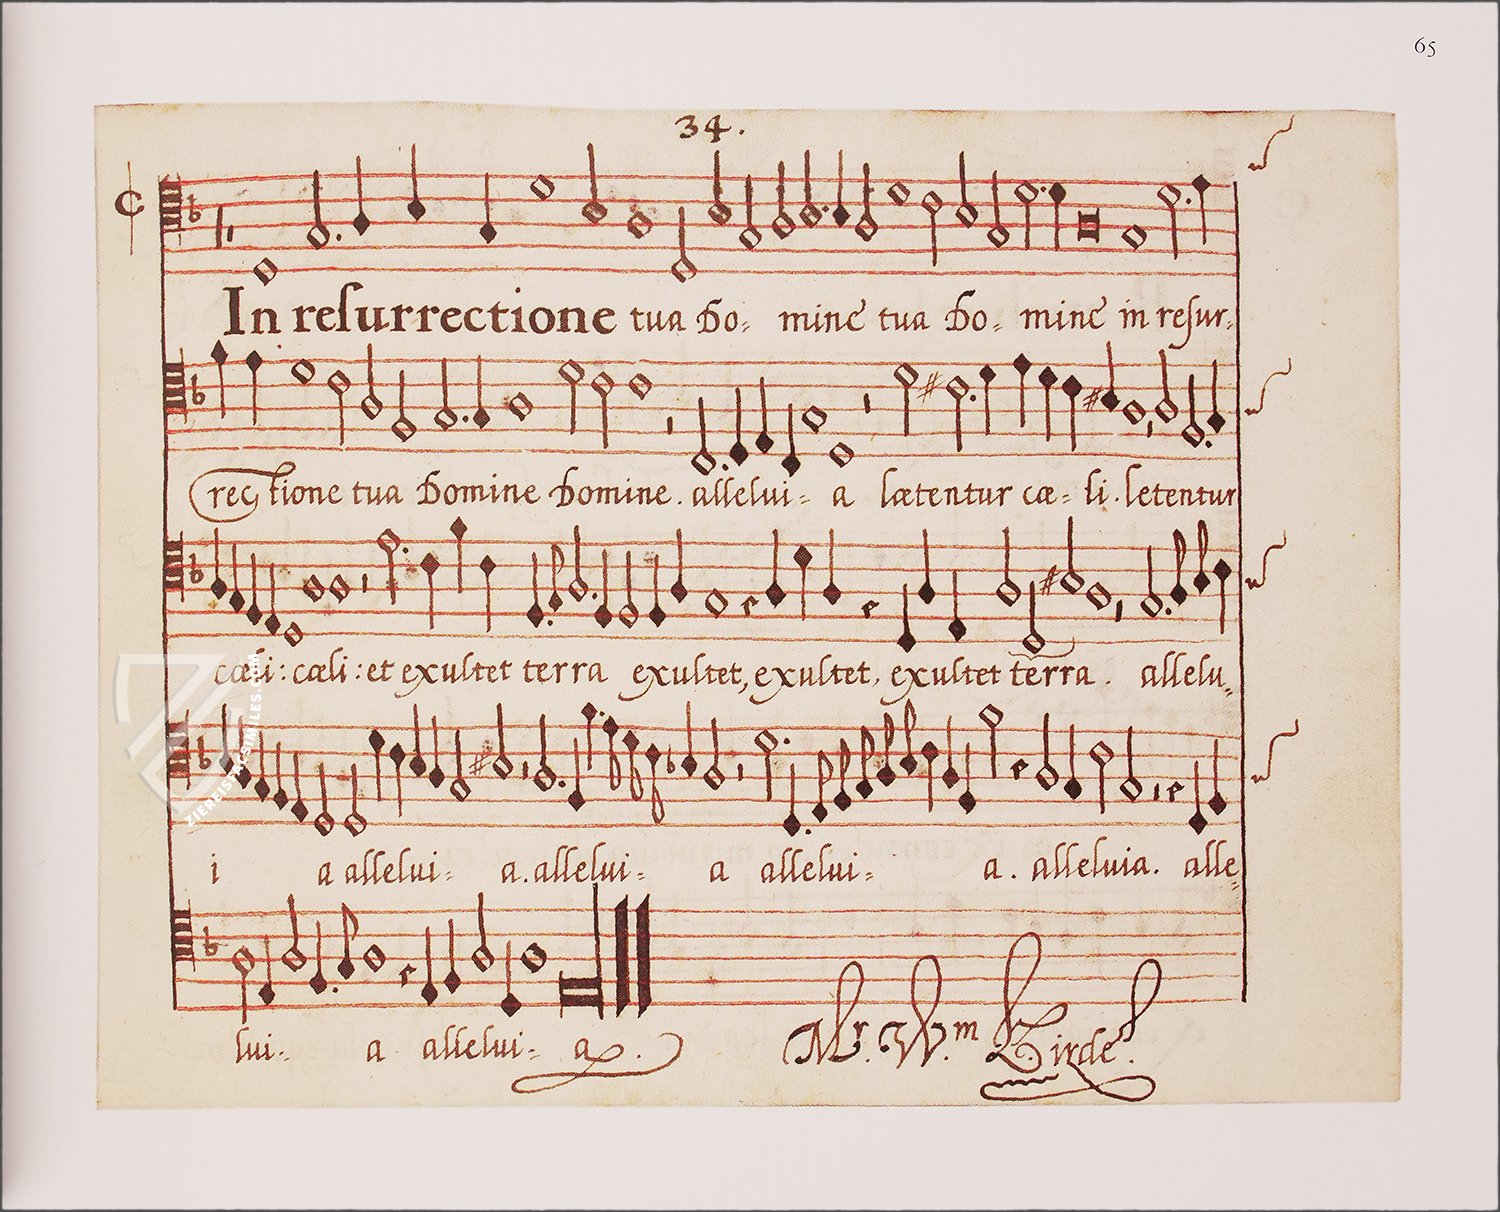 65
34.
In reſurrectione tua Do: mine tua Do: mine in reſur:
rec tione tua Domine Domine. allelui: a lætentur cæ: li. letentur
cæli: cæli: et exultet terra exultet, exultet, exultet terra. allelu:
i a allelui: a. allelui: a allelui: a. alleluia. alle:
lui: a allelui: a.
Mr. Wm. Birde.
ZIEREIS FACSIMILES.COM